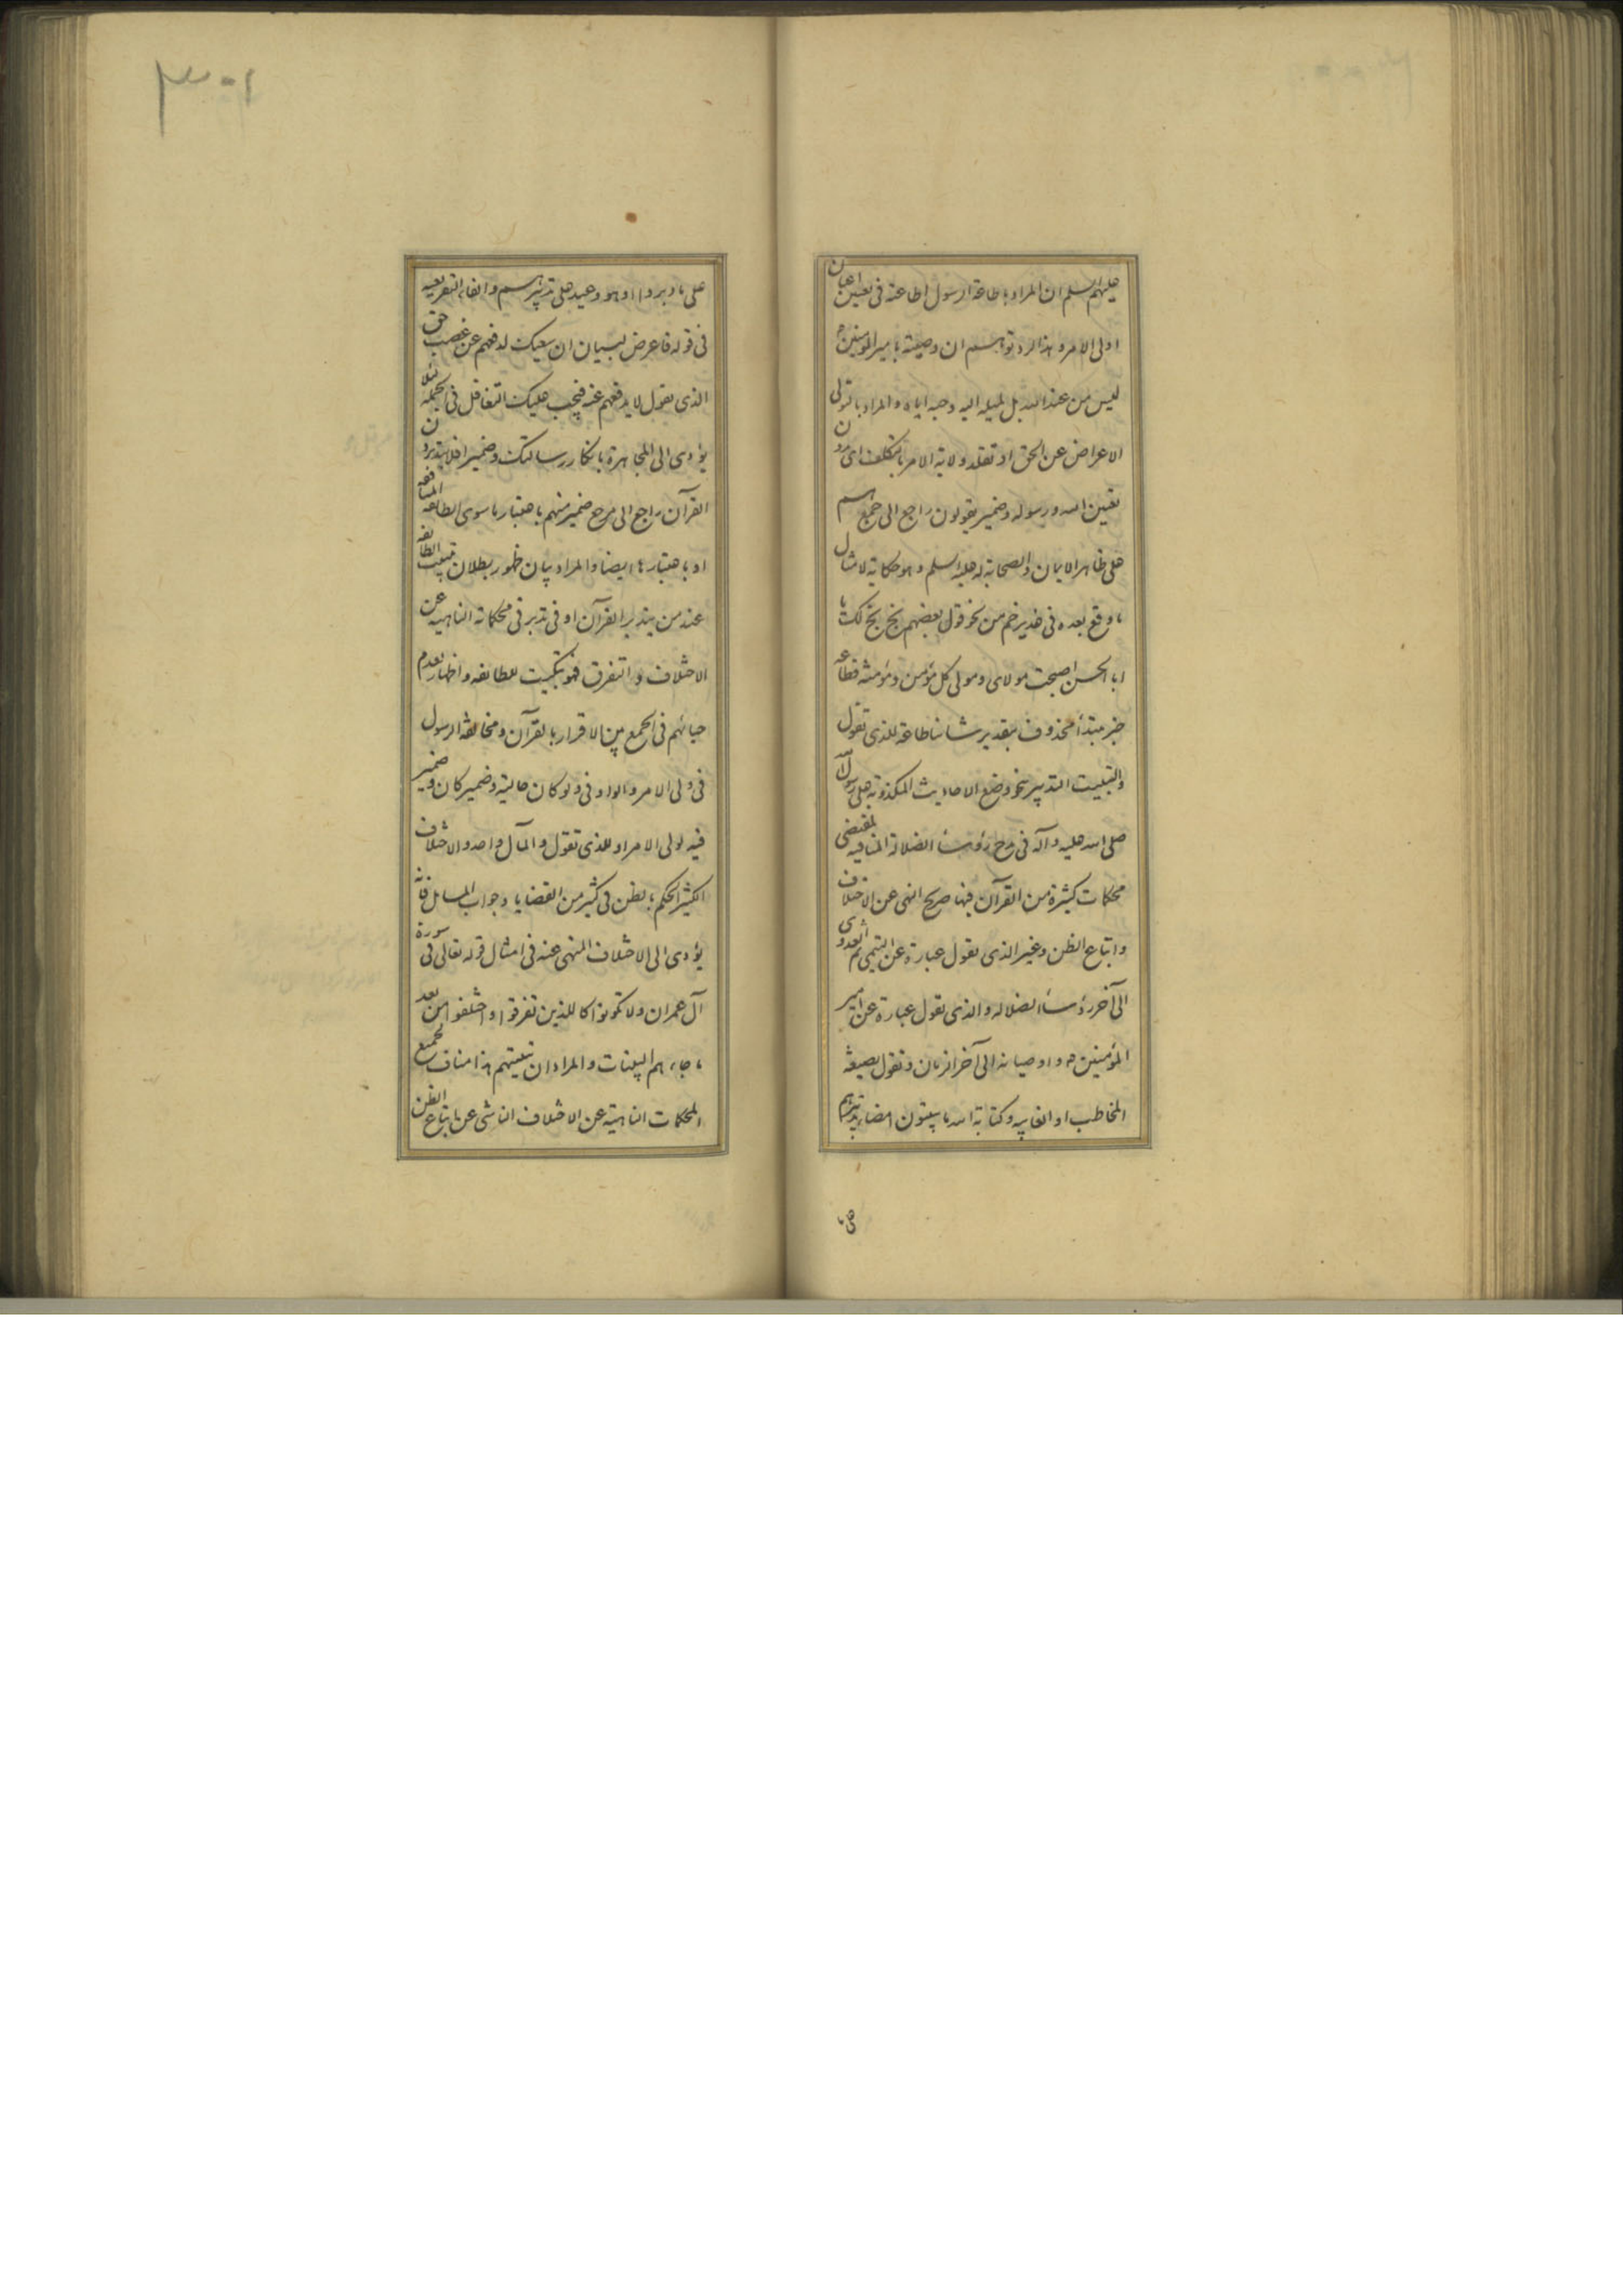 عليهم السلم ان المراد باطاعة الرسول اطاعته فى تعيين اعيان
اولى الامر وهذا لرد توهمهم ان وصيته بامير المؤمنين ع
ليس من عند الله بل لميله اليه وحبه اياه والمراد بالتولى
الاعراض عن الحق او تقلد ولاية الامر بالتكلف اى بدون
تعيين الله ورسوله وضمير يقولون راجع الى جميعهم
على ظاهر الايمان والصحابة له عليه السلم وهو حكاية لامثال
ما وقع بعده فى غدير خم من نحو قول بعضهم بخ بخ لك يا
ابا الحسن اصبحت مولاى ومولى كل مؤمن ومؤمنة فطاعة
خبر مبتدأ محذوف بتقدير شاننا طاعة للذى تقول
والتبييت التدبير نحو وضع الاحاديث المكذوبة على رسول الله
صلى الله عليه وآله فى مدح رؤساء الضلالة المنافيه لمقتضى
محكمات كثيرة من القرآن فيها صريح النهى عن الاختلاف
واتباع الظن وغير الذى تقول عبارة عن التيمى ثم العدوى
الى آخر رؤساء الضلاله والذى تقول عبارة عن امير
المؤمنين ع واوصيائه الى آخر الزمان وتقول بصيغة
المخاطب او الغايبه وكتابة الله ما يبيتون امضاء تدبيرهم
على ما
٣٠١
على ما دبروا او هو وعيد على تدبيرهم والفاء التفريعيه
فى قوله فاعرض لبيان ان سعيك لدفعهم عن غصب حق
الذى تقول لا يدفعهم عنه فيجب عليك التغافل فى الجمله لئلا
يؤدى الى المجاهرة بانكار رسالتك وضمير افلا يتدبرون
القرآن راجع الى مرجع ضمير منهم باعتبار ما سوى الطائفه المنافقه
او باعتبارها ايضا والمراد بيان ظهور بطلان تبييت الطائفه
عند من يتدبر القرآن او فى تدبر فى محكماته الناهيه عن
الاختلاف والتفرق فهو تبكيت للطائفه واظهار لعدم
حيائهم فى الجمع بين الاقرار بالقرآن ومخالفة الرسول
فى ولى الامر والواو فى ولو كان حالية وضمير كان وضمير
فيه لولى الامر او للذى تقول والمآل واحد والاختلاف
الكثير الحكم بالظن فى كثير من القضايا وجواب المسائل فانه
يؤدى الى الاختلاف المنهى عنه فى امثال قوله تعالى فى سورة
آل عمران ولا تكونوا كالذين تفرقوا واختلفوا من بعد
ما جاءهم البينات والمراد ان تبييتهم هذا مناف لجميع
المحكمات الناهية عن الاختلاف الناشى عن اتباع الظن